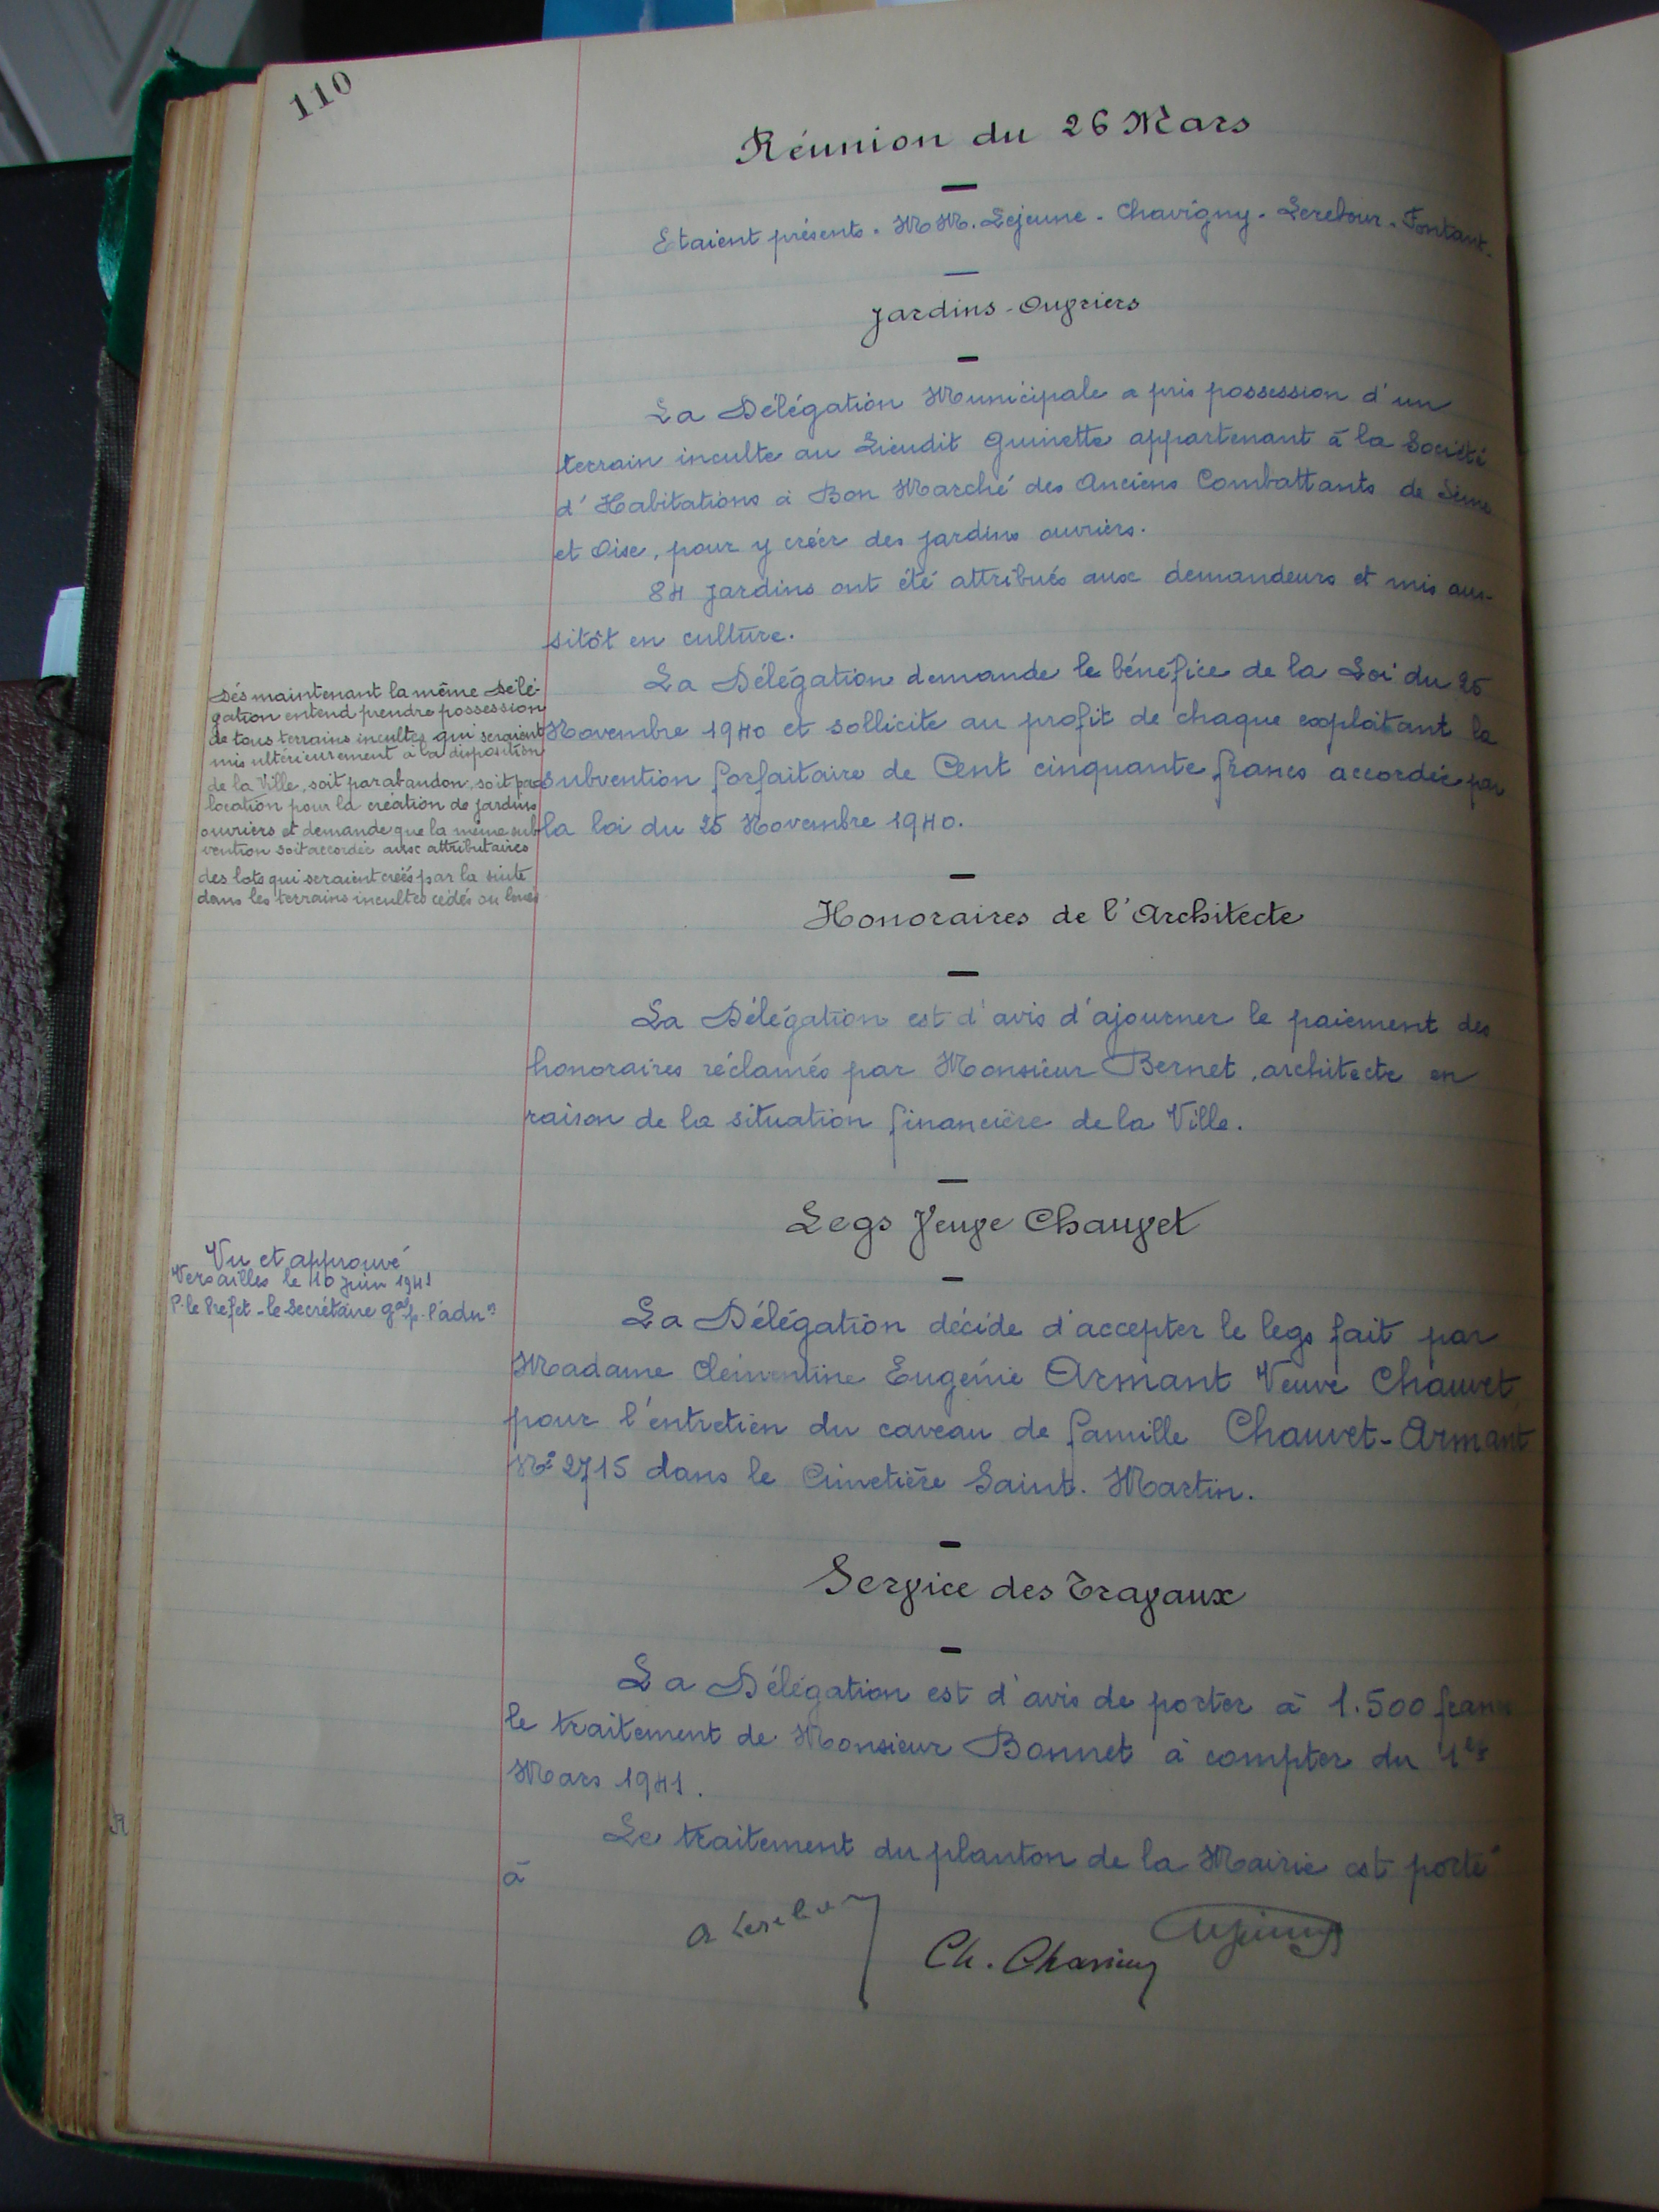 110
Réunion du 26 Mars
Etaient présents. MM. Lejeune - Chavigny - Lerebour - Fontant.
Jardins-Ouvriers
La Délégation Municipale a pris possession d'un
terrain inculte au Lieudit Guinette appartenant à la Société
d'Habitations à Bon Marché des Anciens Combattants de Seine
et Oise, pour y créer des jardins ouvriers.
84 jardins ont été attribués aux demandeurs et mis aus-
sitôt en culture.
La Délégation demande le bénéfice de la Loi du 25
Novembre 1940 et sollicite au profit de chaque exploitant la
subvention forfaitaire de Cent cinquante francs accordée par
la loi du 25 Novembre 1940.
Dès maintenant la même Délé-
gation entend prendre possession
de tous terrains incultes qui seraient
mis ultérieurement à la disposition
de la Ville, soit par abandon, soit par
location pour la création de jardins
ouvriers et demande que la même sub-
vention soit accordée aux attributaires
des lots qui seraient créés par la suite
dans les terrains incultes cédés ou loués
Honoraires de l'Architecte
La Délégation est d'avis d'ajourner le paiement des
honoraires réclamés par Monsieur Bernet, architecte en
raison de la situation financière de la Ville.
Legs Veuve Chauvet
Vu et approuvé
Versailles le 10 juin 1941
P. le Préfet - le Secrétaire gal p. l'adn
La Délégation décide d'accepter le legs fait par
Madame Clémentine Eugénie Armant Veuve Chauvet,
pour l'entretien du caveau de famille Chauvet-Armant
No 2715 dans le Cimetière Saint. Martin.
Service des Travaux
La Délégation est d'avis de porter à 1.500 francs
le traitement de Monsieur Bonnet à compter du 1er
Mars 1941.
Le traitement du planton de la Mairie est porté
à
A Lerebour
Ch. Chavigny